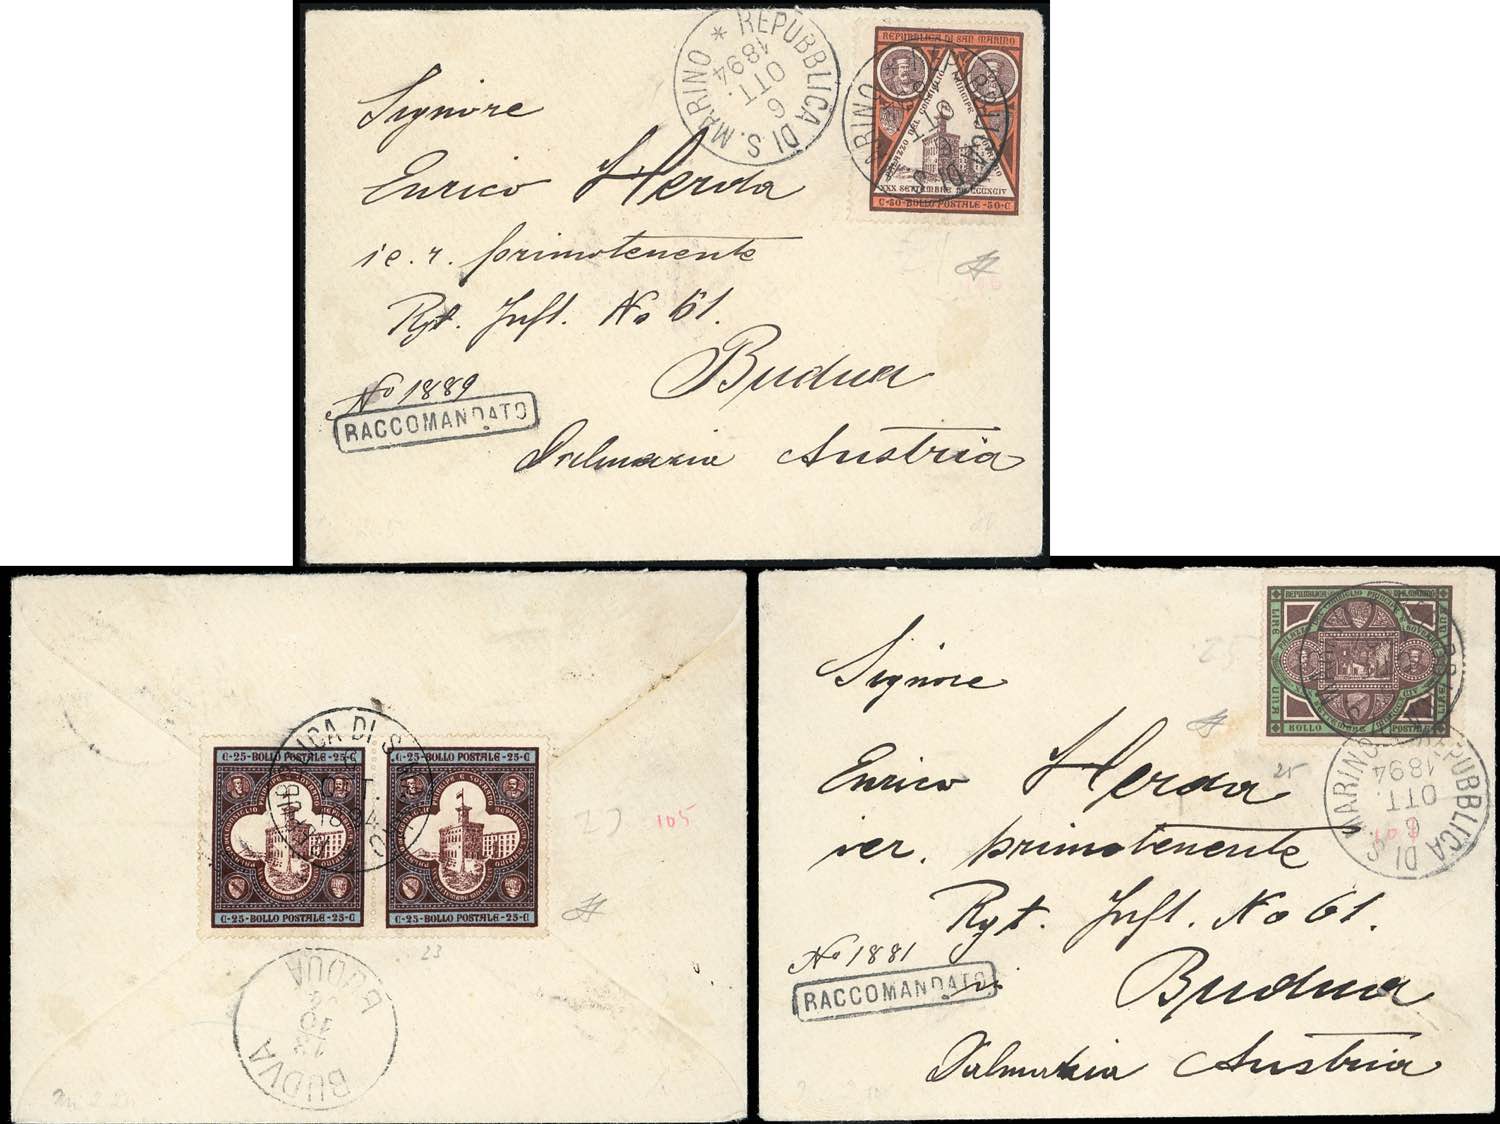 Signore
Enrico Herda
i e. r. primotenente
Rgt. Inft. No 61.
No 1889
RACCOMANDATO
Budua
Dalmazia Austria
* REPUBBLICA DI S. MARINO
6
OTT.
1894
REPUBBLICA DI SAN MARINO
PALAZZO DEL CONSIGLIO PRINCIPE E SOVRANO
XXX SETTEMBRE MDCCCXCIV
C-50-BOLLO POSTALE-50-C
C-25-BOLLO POSTALE-25-C
C-25-BOLLO POSTALE-25-C
C-25-BOLLO POSTALE-25-C
C-25-BOLLO POSTALE-25-C
23
105
23
BUDUA
BUDVA
Signore
Enrico Herda
i e r. primotenente
Rgt. Inft. No 61.
No 1881
RACCOMANDATO
Budua
Dalmazia Austria
LIRE UNA
BOLLO POSTALE
25
25
REPUBBLICA DI S. MARINO
6
OTT.
1894